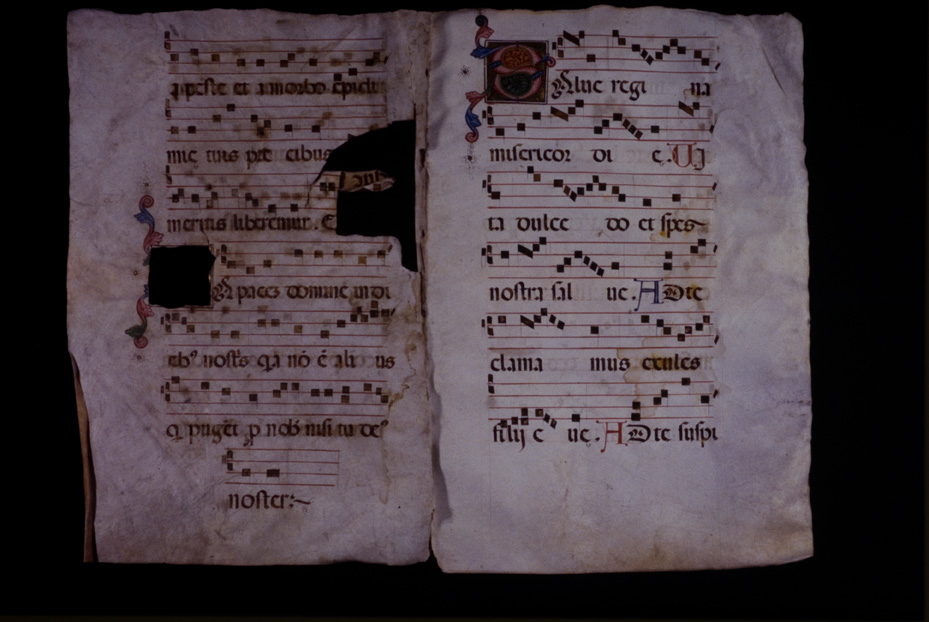 a peste et a morbo Epidi
mie tuis precibus
meritis liberemur. E
A paces domine in di
eb9 nost's q̄a nō ē ali us
q pugēt p nob nisi tu de9
noster:~
SAlue regi na
misericor di e. UJ
ta dulce do et spes
nostra sal ue. AD te
clama mus exules
filij e ue. AD te suspi